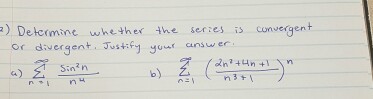 2) Determine whether the series is convergent
or divergent. Justify your answer.
a) ∞ Σ n=1 sin²n / n⁴ b) ∞ Σ n=1 ( 2n² + 4n + 1 / n³ + 1 )ⁿ